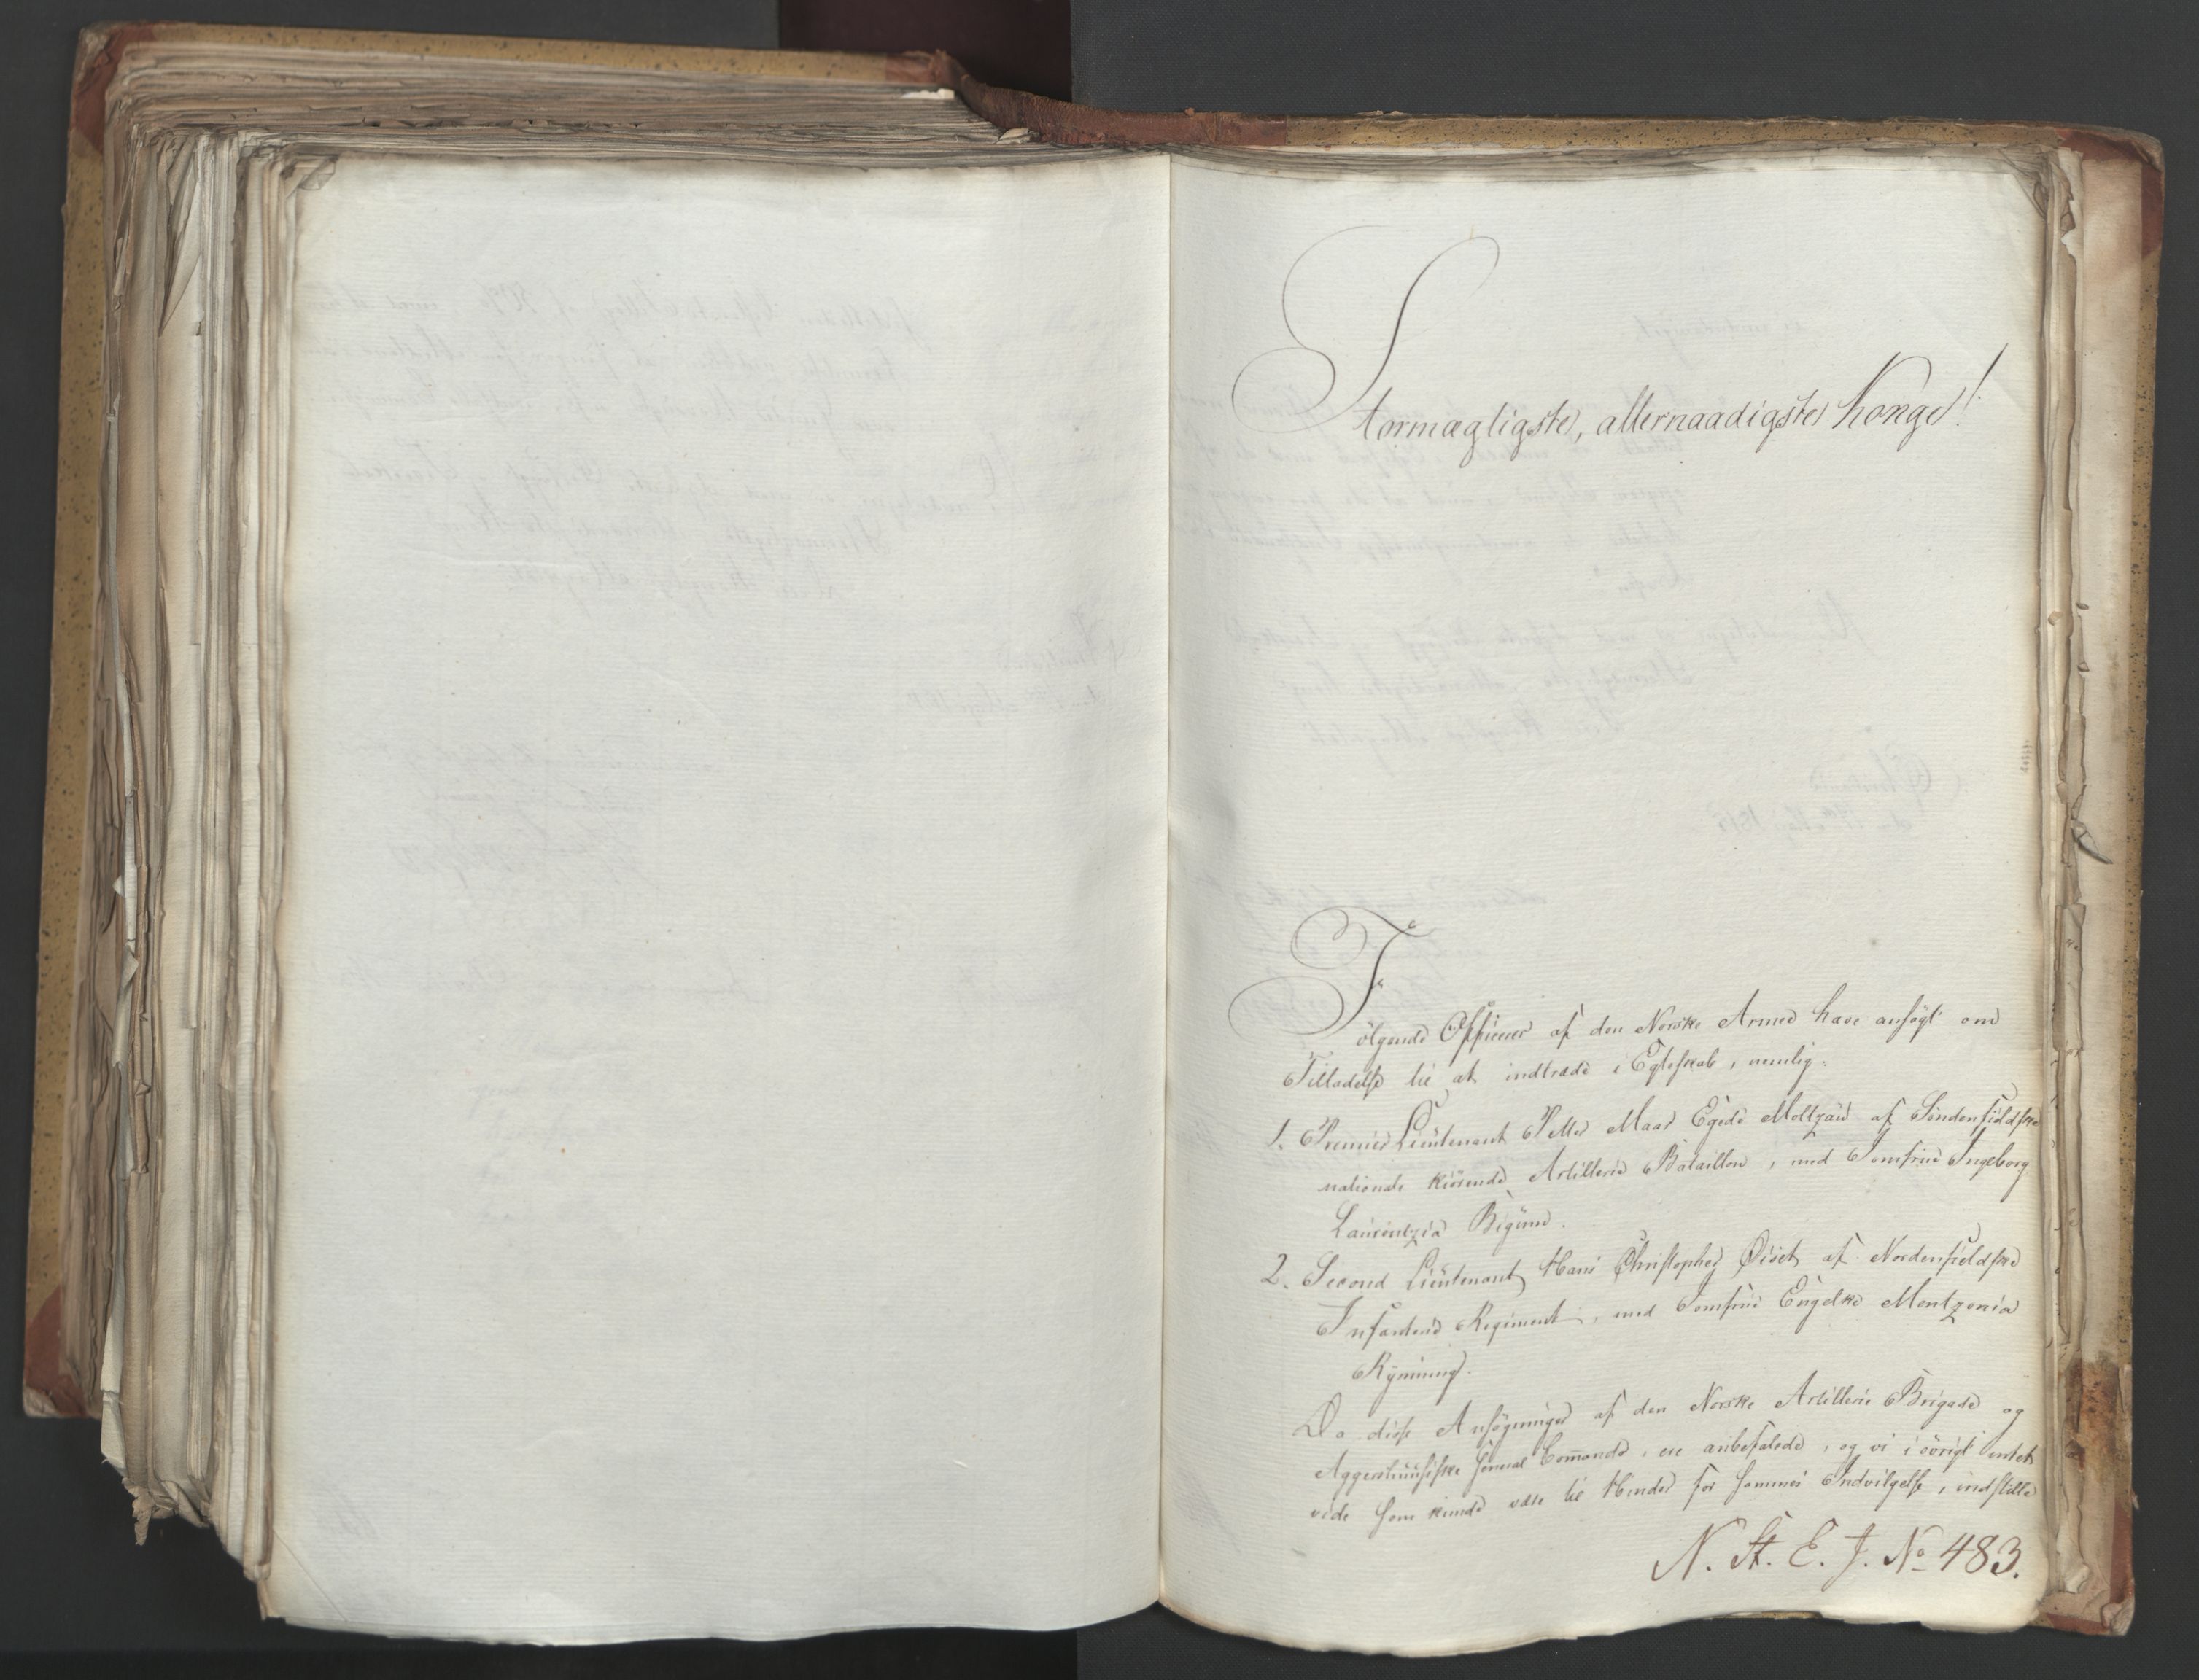 Stormægtigste, allernaadigste Konge!
Følgende Officerer af den Norske Armee have ansøgt om
Tilladelse til at indtræde i Egteskab, nemlig:
1. Premier Lieutenant Peter Maar Egede Meltzau af Søndenfieldske
nationale kiørende Artillerie Bataillon, med Jomfrue Ingeborg
Laurentzia
2. Second Lieutenant Hans Christopher Øiset af Nordenfieldske
Infanterie Regiment, med Jomfrue Engelke Mentzonia
Rynning.
Da disse Ansøgninger af den Norske Artillerie Brigade og
Aggershuusiske General Commando, ere anbefalede, og vi i øvrigt intet
vide som kunde være til Hinder for sammes Indvilgelse, indstille
N. St. E. J. No 483.